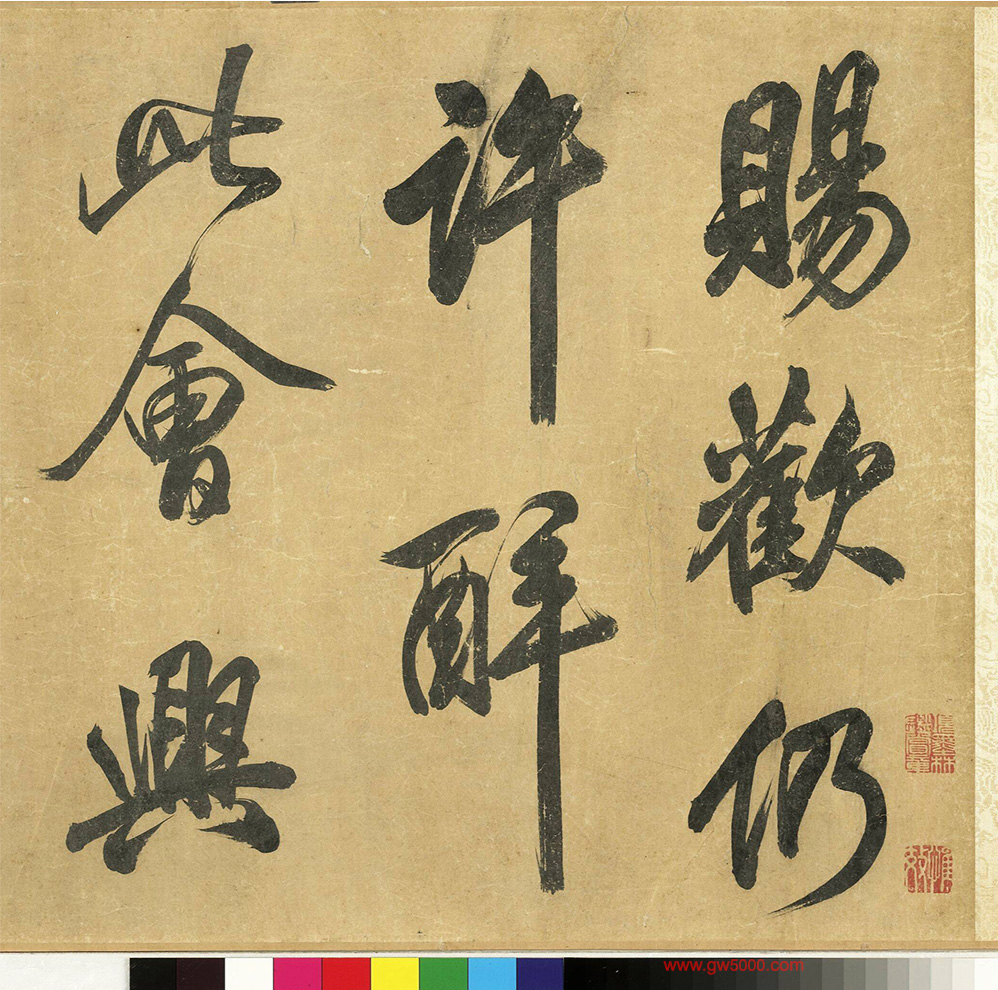 賜歡仍
許醉
此會興
www.gw5000.com